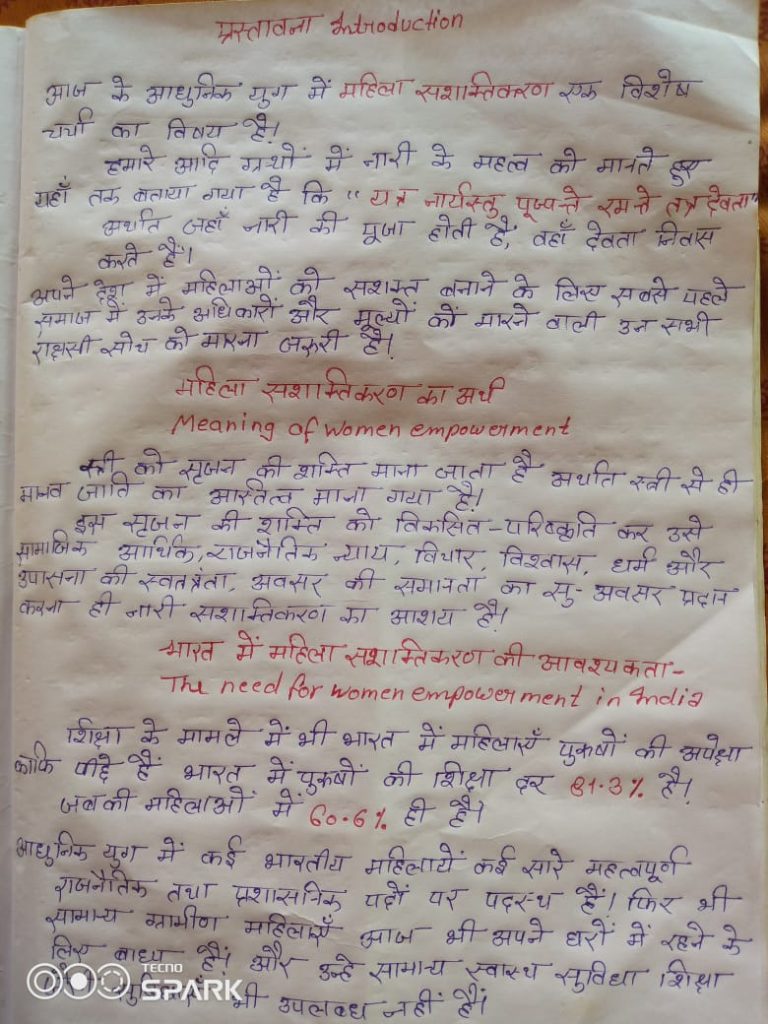 प्रस्तावना Introduction
आज के आधुनिक युग में महिला सशाक्तिकरण एक विशेष
चर्चा का विषय है।
हमारे आदि ग्रथों में नारी के महत्व को मानते हुए
यहाँ तक बताया गया है कि "यत्र नार्यस्तु पूज्यन्ते रमन्ते तत्र देवता"
अर्थात जहाँ नारी की पूजा होती है, वहाँ देवता निवास
करते है।
अपने देश में महिलाओं को सशक्त बनाने के लिए सबसे पहले
समाज में उनके अधिकारों और मूल्यों कों मारने वाली उन सभी
राक्षसी सोच को मारना जरुरी है।
महिला सशाक्तिकरण का अर्थ
Meaning of women empowerment
स्त्री को सृजन की शक्ति माना जाता है अर्थात स्त्री से ही
मानव जाति का अस्तित्व माना गया है।
इस सृजन की शक्ति को विकसित-परिष्कृति कर उसे
सामाजिक आर्थिक, राजनैतिक न्याय, विचार, विश्वास, धर्म और
उपासना की स्वतत्रंता, अवसर की समानता का सु-अवसर प्रदान
करना ही नारी सशाक्तिकरण का आशय है।
भारत में महिला सशाक्तिकरण की आवश्यकता-
The need for women empowerment in India
शिक्षा के मामले में भी भारत में महिलाएँ पुरुषों की अपेक्षा
काफि पीछे हैं भारत में पुरुषों की शिक्षा दर 81.3% है।
जबकी महिलाओं में 60.6% ही है।
आधुनिक युग में कई भारतीय महिलायें कई सारे महत्वपूर्ण
राजनैतिक तथा प्रशासनिक पदों पर पदस्थ हैं। फिर भी
सामान्य ग्रामीण महिलाएँ आज भी अपने घरों में रहने के
लिए बाध्य हैं। और उन्हे सामान्य स्वास्थ सुविधा शिक्षा
भी उपलब्ध नहीं हैं।
TECNO
SPARK